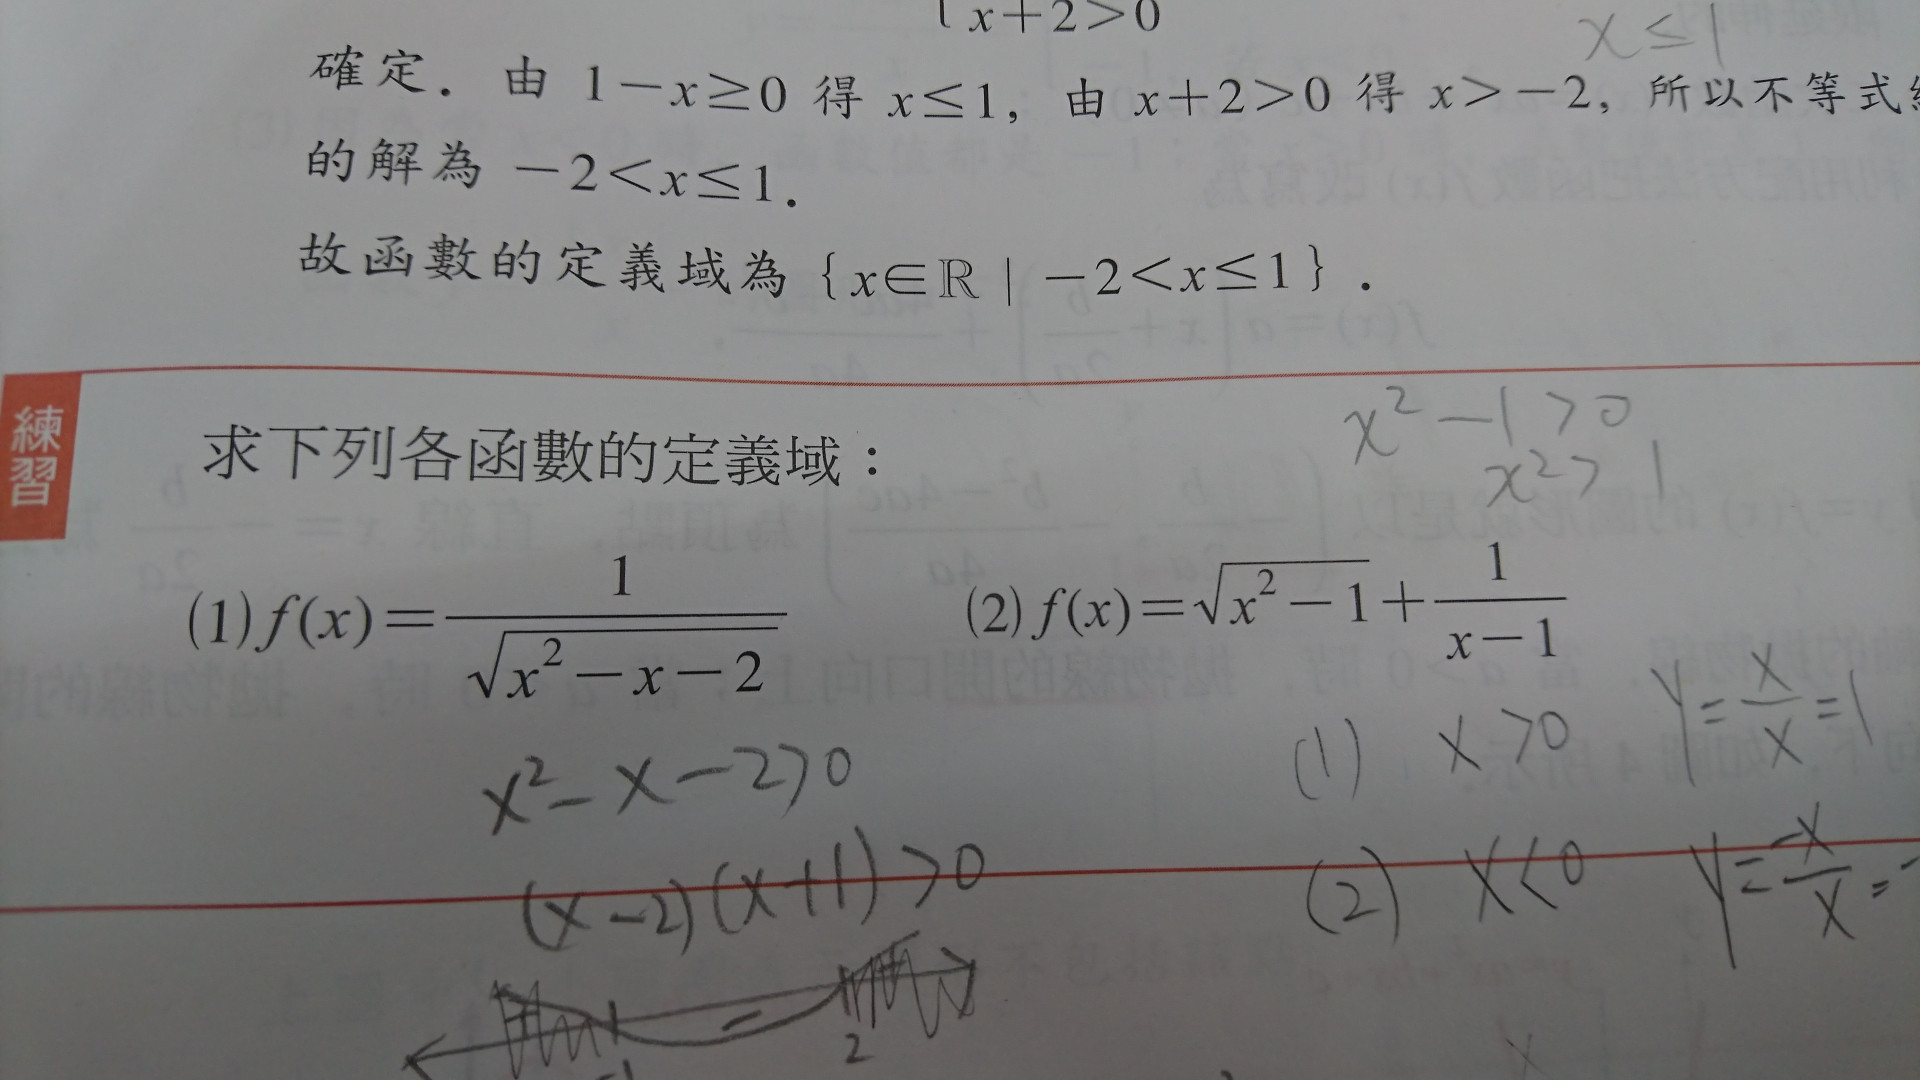 x+2>0
x≤1
確定．由 1－x≥0 得 x≤1，由 x+2>0 得 x>－2，所以不等式
的解為 －2<x≤1．
故函數的定義域為 {x∈ℝ | －2<x≤1}．
練習
求下列各函數的定義域：
x²－1>0
x²>1
(1) f(x)=1/√(x²－x－2)
(2) f(x)=√(x²－1)+1/(x－1)
x²－x－2>0
(x－2)(x+1)>0
－1 2
(1) x>0 y=x/x=1
(2) x<0 y=－x/x=－